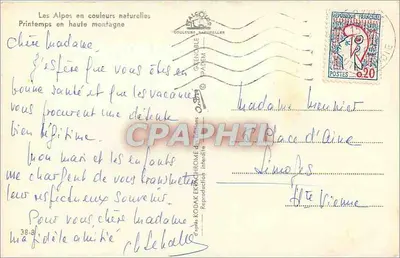 Les Alpes en couleurs naturelles
Printemps en haute montagne
Chère Madame,
J'espère que vous êtes en
bonne santé et que les vacances
vous procurent une détente
bien légitime.
Mon mari et les enfants
me chargent de vous transmettre
leur respectueux souvenir.
Pour vous chère Madame
ma fidèle amitié
38-8
COULEURS NATURELLES
KODAK EKTACHROME
Reproduction interdite
REPUBLIQUE FRANCAISE
POSTES 0,20
Madame Meunier
Place d'Aine
Limoges
Hte Vienne
CPAPHIL.COM